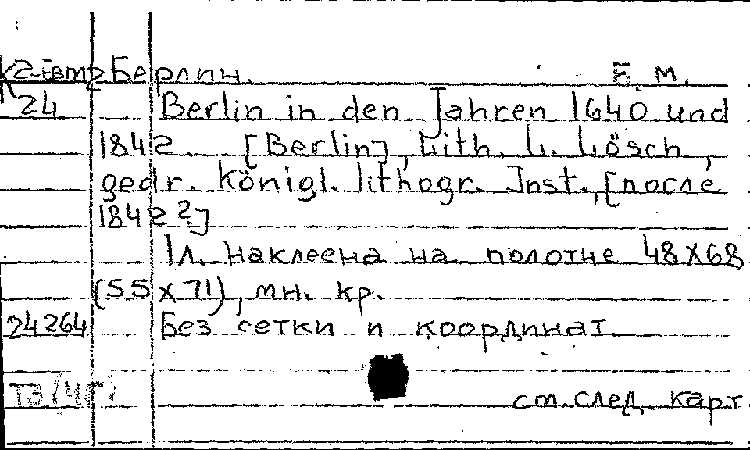 К2-Iвт2 Берлин. Б. м.
24 Berlin in den Jahren 1640 und
1842. [Berlin], Lith. L. Lösch,
gedr. Königl. lithogr. Inst., [после
1842?]
1л. наклеена на полотне 48x68
(55x71), мн. кр.
24264 Без сетки и координат
см. след. карт.